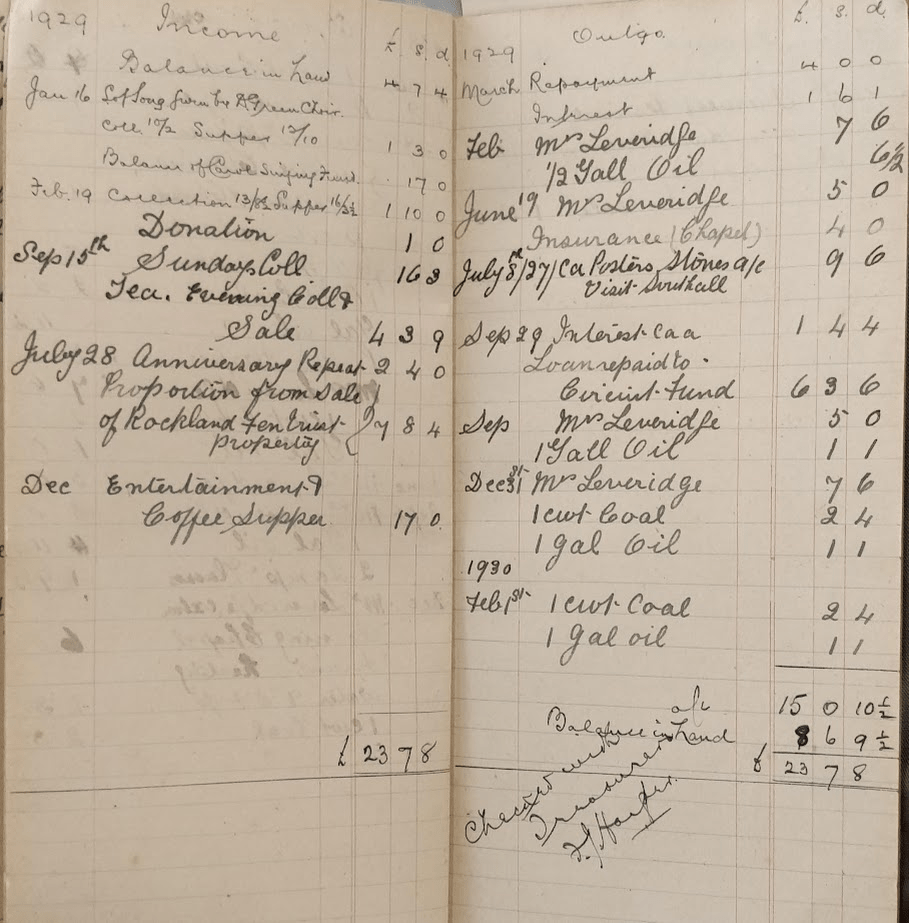 1929 Income £ s. d.
Balance in hand 4 7 4
Jan 16 Sof Song given by Choir
Coll 10/2 Supper 12/10 1 3 0
Balance of Carol Singing Fund. 17 0
Feb. 19 Collection 13/8½ Supper 16/3½ 1 10 0
Donation 1 0
Sep 15th Sundays Coll 16 3
Tea. Evening Coll &
Sale 4 3 9
July 28 Anniversary Repeat 2 4 0
Proportion from Sale
of Rockland Fen Trust 7 8 4
property
Dec Entertainment &
Coffee Supper 17 0
£ 23 7 8
1929 Outgo £. s. d.
March Repayment 4 0 0
Interest 1 6 1
Feb Mrs Leveridge 7 6
1/2 Gall Oil 6½
June 19 Mrs Leveridge 5 0
Insurance (Chapel) 4 0
July Posters, Stones a/c 9 6
Visit Southall
Sep 29 Interest 1 4 4
Loan repaid to
Circuit Fund 6 3 6
Sep Mrs Leveridge 5 0
1 Gall Oil 1 1
Dec 31st Mrs Leveridge 7 6
1 cwt Coal 2 4
1 Gal Oil 1 1
1930
Feb 1st 1 cwt Coal 2 4
1 Gal oil 1 1
15 0 10½
Balance in Hand a/c 8 6 9½
£ 23 7 8
Checked with
Treasurer